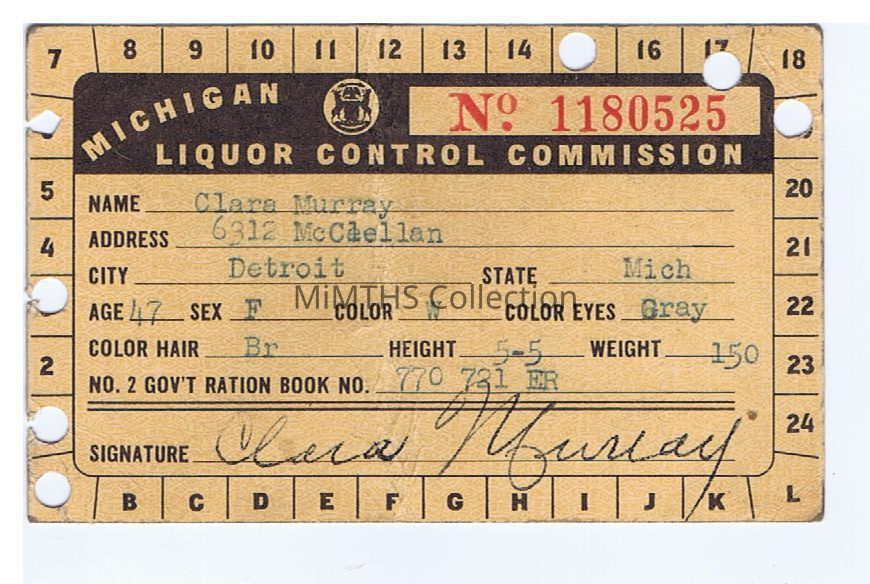 7 8 9 10 11 12 13 14 16 17 18
MICHIGAN
Nº. 1180525
LIQUOR CONTROL COMMISSION
NAME Clara Murray
5 20
ADDRESS 6312 McClellan
4 21
CITY Detroit STATE Mich
MiMTHS Collection
AGE 47 SEX F COLOR W COLOR EYES Gray
22
COLOR HAIR Br HEIGHT 5-5 WEIGHT 150
2 23
NO. 2 GOV'T RATION BOOK NO. 770 721 ER
24
SIGNATURE Clara Murray
B C D E F G H I J K L